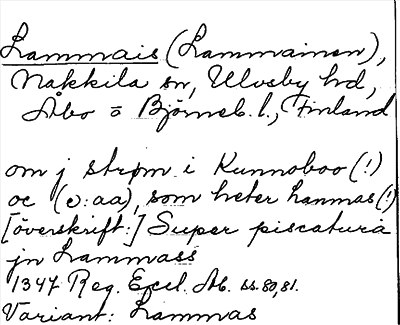 Lammais (Lammainen),
Nakkila sn, Ulvsby hd,
Åbo o Björneb. l., Finland
om j strøm i Kunnoboo (!)
oc (ɔ: aa), som heter lanmas (!)
[överskrift:] Super piscatura
jn Lammass
1347 Reg. Eccl. Ab. ss. 80, 81.
Variant: Lammas